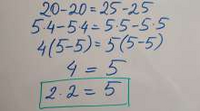 20-20=25-25
5·4-5·4=5·5-5·5
4(5-5)=5(5-5)
4=5
2·2=5